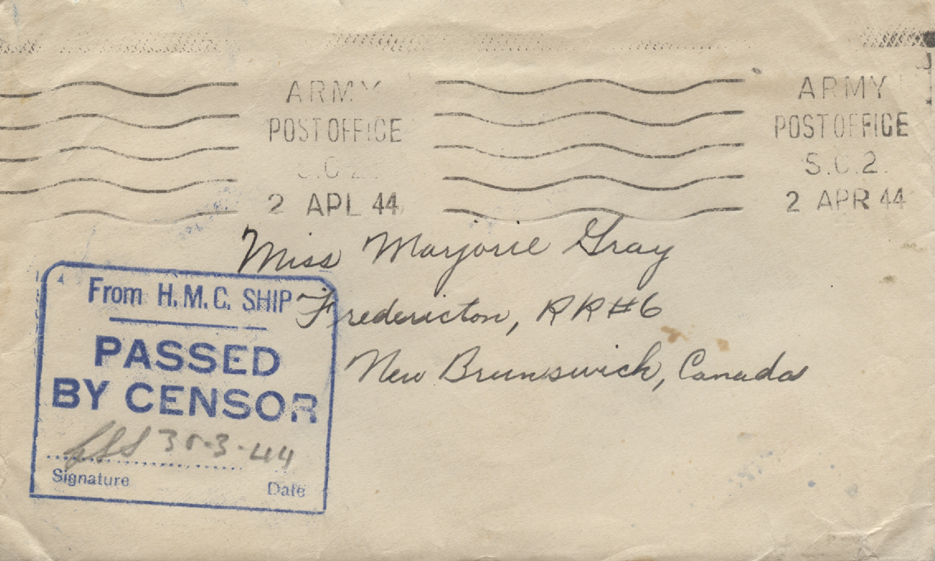 ARMY
POST OFFICE
2 APL 44
ARMY
POST OFFICE
S.C.2.
2 APR 44
Miss Marjorie Gray
Fredericton, RR#6
New Brunswick, Canada
From H.M.C. SHIP
PASSED
BY CENSOR
3-44
Signature
Date